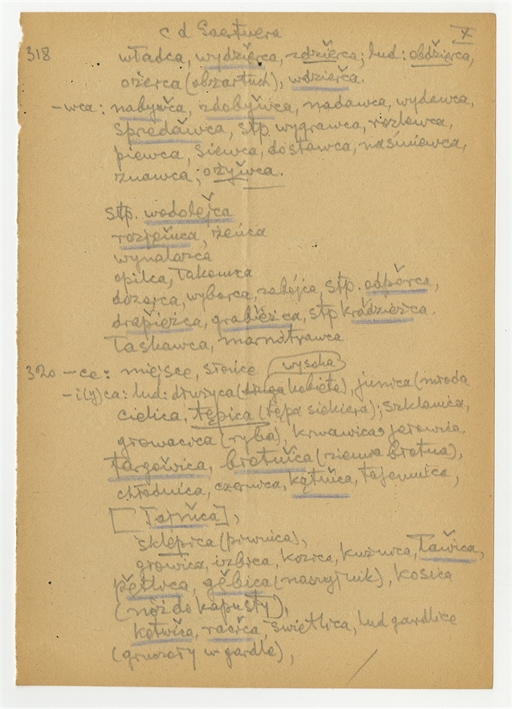 c d Gaertnera
X
318 władca, wydzierca, zdzierca; lud: obdzierca,
ożerca (obżartuch), wdzierca.
-wca: nabywca, zdobywca, nadawca, wydawca,
sprzedawca, stp. wygrawca, rozlewca,
piewca, siewca, dostawca, naśmiewca,
znawca; ożywca.
stp. wodolejca
rozjemca, żeńca
wynalazca
opilca, łakomca
dozorca, wyborca, zabójca, stp. odpórca,
drapieżca, grabieżca, stp kradzieżca
łaskawca, marnotrawca
320 -ce: miejsce, słońce wysoka
-i(y)ca: lud: drwżyca (długa kobieta), junica (młoda
cielica, tępica (tępa siekiera); szklanica,
growacica (ryba), krwawica
targowica, błotnica (ziemia błotna),
chłodnica, czernica, kątnica, tajemnica,
[ ],
sklepica (piwnica),
growica, izbica, kozica, kuźnica, ławica,
pętlica, gębica (naszyjnik), kosica
(nóż do kapusty),
kotwica, racica, świetlica, lud gardlice
(gruczoły w gardle),